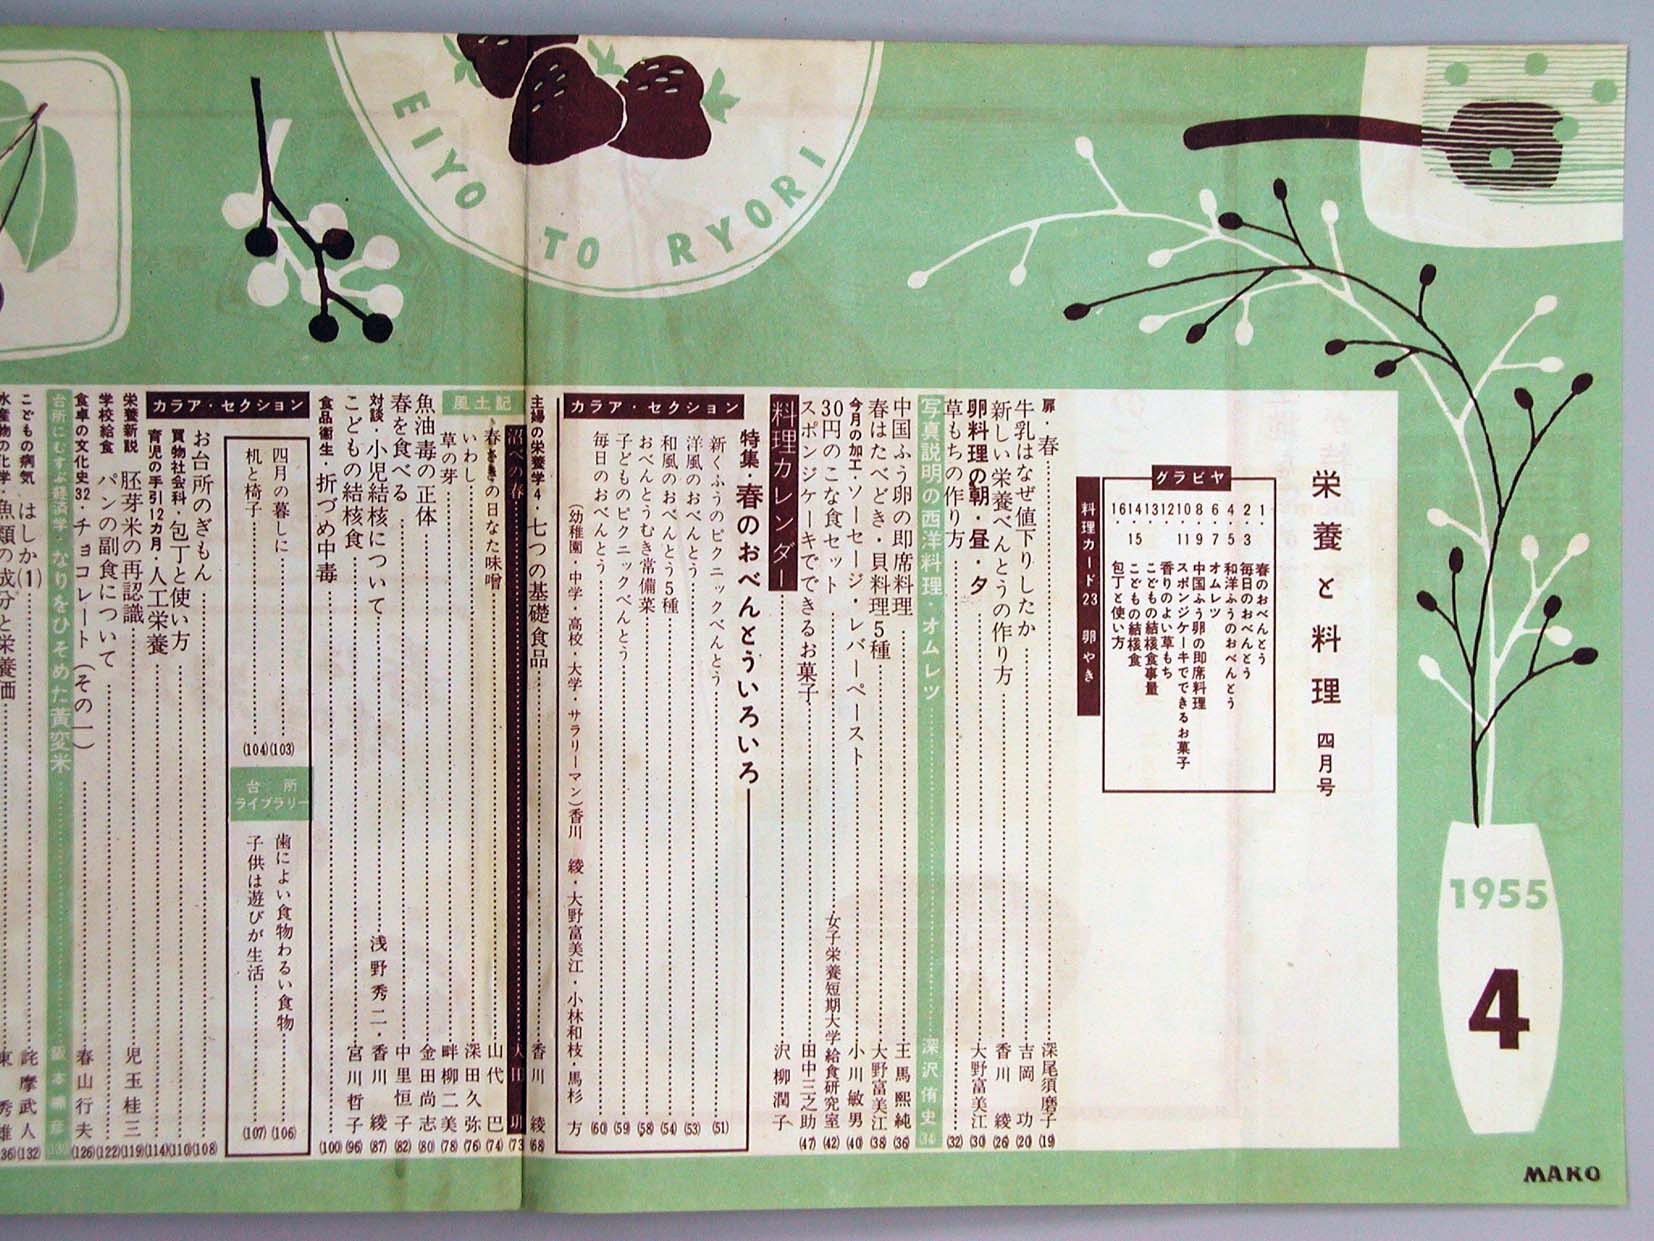 EIYO TO RYORI
栄養と料理 四月号
1955
4
MAKO
グラビヤ
1 春のおべんとう
2・3 毎日のおべんとう
4・5 和洋ふうのおべんとう
6・7 オムレツ
8・9 中国ふう卵の即席料理
10・11 スポンジケーキでできるお菓子
12 香りのよい草もち
13 こどもの結核食事量
14・15 こどもの結核食
16 包丁と使い方
料理カード23 卵やき
扉・春 深尾須磨子 (19)
牛乳はなぜ値下りしたか 吉岡功 (20)
新しい栄養べんとうの作り方 香川綾 (26)
卵料理の朝・昼・夕 大野富美江 (30)
草もちの作り方 (32)
写真説明の西洋料理・オムレツ 深沢侑史 (34)
中国ふう卵の即席料理 王馬熙純 (36)
春はたべどき・貝料理5種 大野富美江 (38)
今月の加工・ソーセージ・レバーペースト 小川敏男 (40)
30円のこな食セット 女子栄養短期大学給食研究室 (42)
スポンジケーキでできるお菓子 田中三之助 (47)
料理カレンダー 沢柳潤子
特集・春のおべんとういろいろ
カラア・セクション
新くふうのピクニックべんとう (51)
洋風のおべんとう (53)
和風のおべんとう5種 (54)
おべんとうむき常備菜 (58)
子どものピクニックべんとう (59)
毎日のおべんとう (60)
(幼稚園・中学・高校・大学・サラリーマン)香川綾・大野富美江・小林和枝・馬杉方
主婦の栄養学4・七つの基礎食品 香川綾 (68)
風土記
沼べの春 (73)
春の日なた味噌 山代巴 (74)
いわし 深田久弥 (76)
草の芽 畔柳二美 (78)
魚油毒の正体 金田尚志 (80)
春を食べる 中里恒子 (82)
対談・小児結核について 浅野秀二・香川綾 (87)
こどもの結核食 宮川哲子 (96)
食品衛生・折づめ中毒 (100)
カラア・セクション
四月の暮しに (103)
机と椅子 (104)
台所ライブラリー
歯によい食物わるい食物 (106)
子供は遊びが生活 (107)
お台所のぎもん (108)
買物社会科・包丁と使い方 (110)
育児の手引12カ月・人工栄養 (114)
栄養新説 胚芽米の再認識 児玉桂三 (119)
学校給食 パンの副食について (122)
食卓の文化史32・チョコレート(その一) 春山行夫 (126)
台所にむすぶ経済学・なりをひそめた黄変米
こどもの病気 はしか(1) 詫摩武人 (132)
水産物の化学・魚類の成分と栄養価 東秀雄